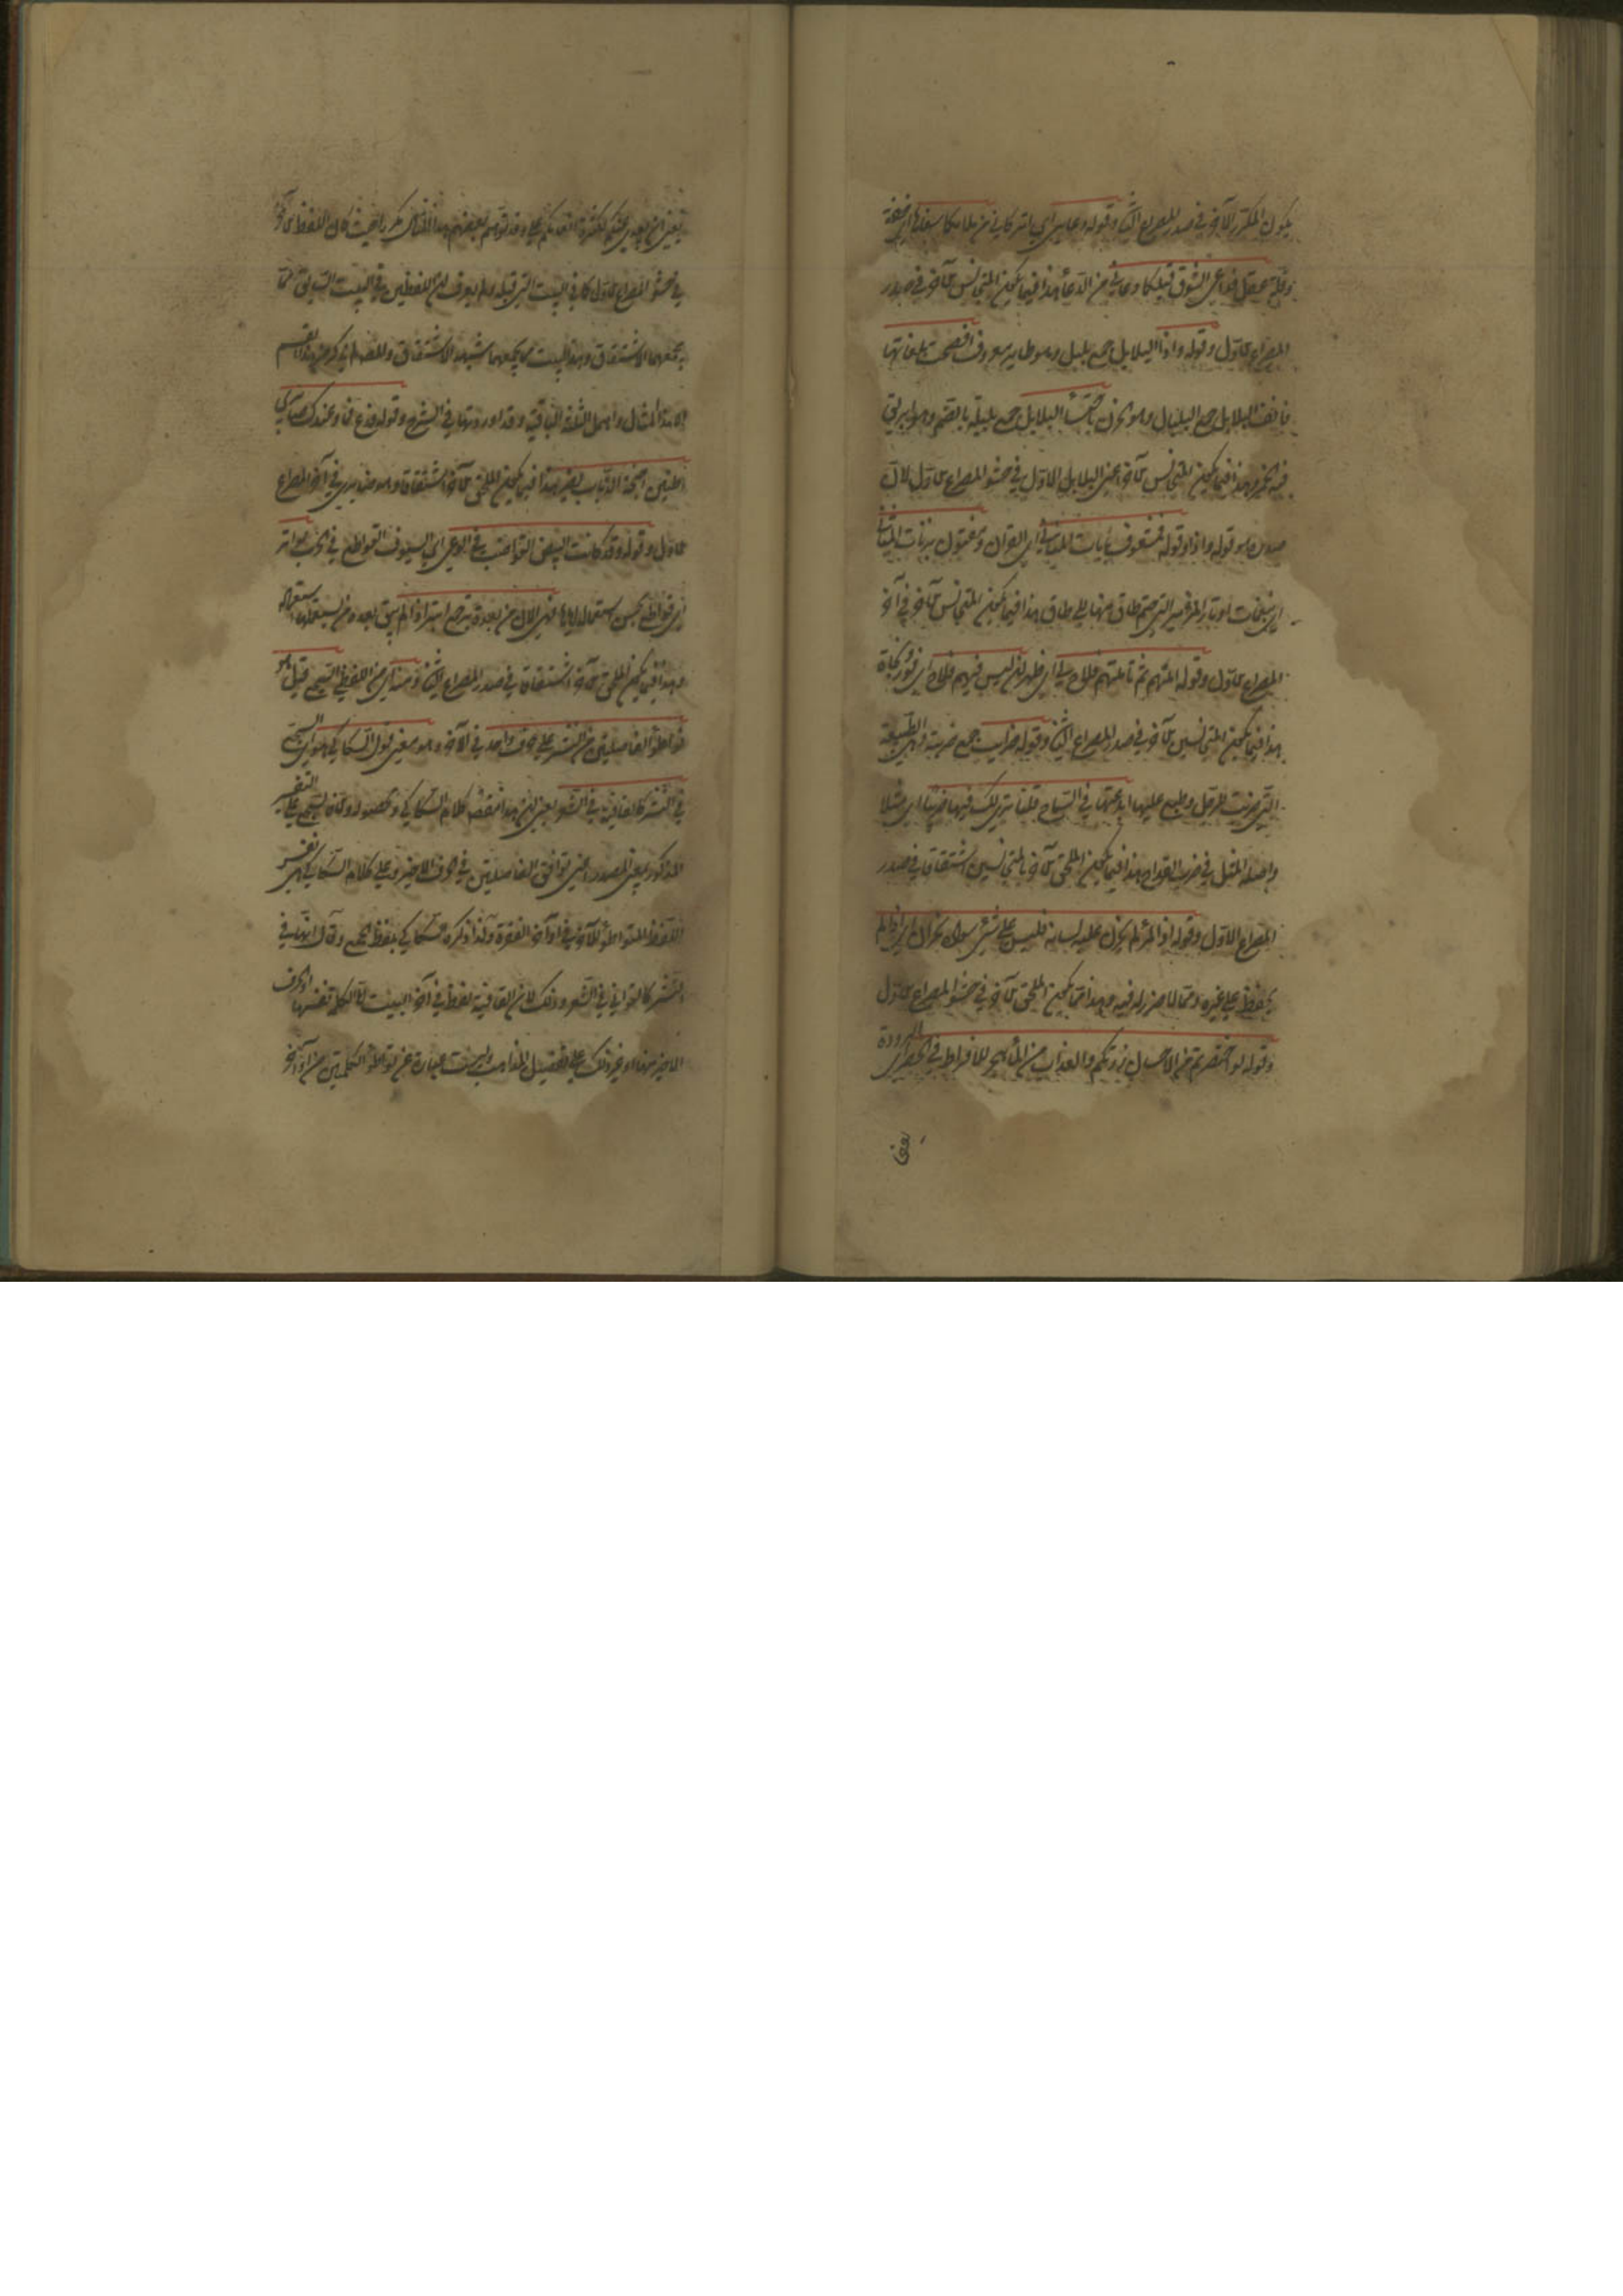 يكون المكرر الآخر في صدر المصراع الثاني وقوله دعاني اي اتركاني من ملامكما سفاها اي خفة
وقلة عقل فداعي الشوق قبلكما دعاني من الدعاء هذا فيما يكون المتجانس الآخر في صدر
المصراع الاول وقوله واذا البلابل جمع بلبل وهو طاير معروف افصحت بلغاتها
فانف البلابل جمع البلبال وهو الحزن باحتساء البلابل جمع بلبلة بالضم وهو ابريق
فيه الخمر وهذا فيما يكون المتجانس الآخر اعني البلابل الاول في حشو المصراع الاول لان
صدره هو قوله واذا وقوله فمشغوف بآيات المثاني اي القرآن ومفتون برنات المثاني
اي نغمات اوتار المزامير التي ضم طاق منها الى طاق هذا فيما يكون المتجانس الآخر في آخر
المصراع الاول وقوله املتهم ثم تأملتهم فلاح لي اي ظهر ان ليس فيهم فلاح اي فوز ونجاة
هذا فيما يكون المتجانس الآخر في صدر المصراع الثاني وقوله ضرايب جمع ضريبة وهي الطبيعة
التي ضربت للرجل وطبع عليها ابدعتها في السماح فلسنا نرى لك فيها ضريبا اي مثلا
واصله المثل في ضرب القداح هذا فيما يكون الملحق الآخر بالمتجانسين اشتقاقا في صدر
المصراع الاول وقوله اذا المرء لم يخزن عليه لسانه فليس على شيء سواه بخزان اي اذا لم
يحفظ على غيره مما لا ضرر له فيه وهذا مما يكون الملحق الآخر في حشو المصراع الاول
وقوله لو اختصرتم من الاحسان زرتكم والعذب من الماء يهجر للافراط في الخصر اي البرودة
يعني
يعني ان بعدي عنكم لكثرة انعامكم علي وقد توهم بعضهم هذا المثال مكررا حيث كان اللفظ الآخر
في حشو المصراع الاول كما في البيت الذي قبله ولم يعرف ان اللفظين في البيت السابق مما
يجمعهما الاشتقاق وهذا البيت مما يجمعهما شبه الاشتقاق والمصنف لم يذكر من هذا القسم
الا هذا المثال واهمل الثلثة الباقية وقد اوردتها في الشرح وقوله فدع الوعيد فما وعيدك ضايري
اطنين اجنحة الذباب يضير هذا فيما يكون الملحق الآخر اشتقاقا وهو ضايري في آخر المصراع
الاول وقوله وقد كانت البيض القواضب في الوغى اي السيوف القواطع في الحرب بواتر
اي قواطع بحسن استعماله اياها فهي الآن من بعده بتر جمع ابتر اذ لم يبق بعده من يستعملها استعماله
وهذا فيما يكون الملحق الآخر اشتقاقا في صدر المصراع الثاني ومنه اي من اللفظي السجع قيل وهو
تواطؤ الفاصلتين من النثر على حرف واحد في الآخر وهو معنى قول السكاكي هو اي السجع
في النثر كالقافية في الشعر يعني ان هذا مقصود كلام السكاكي ومحصوله والا فالسجع على التفسير
المذكور بمعنى المصدر اعني توافق الفاصلتين في الحرف الاخير وعلى كلام السكاكي هو نفس
اللفظ المتواطئ الآخر في اواخر الفقرة ولذا ذكره السكاكي بلفظ الجمع وقال انها في
النثر كالقوافي في الشعر وذلك لان القافية لفظ في آخر البيت اما الكلمة نفسها او الحرف
الاخير منها او غير ذلك على تفصيل المذاهب وليست عبارة عن تواطؤ الكلمتين من اواخر